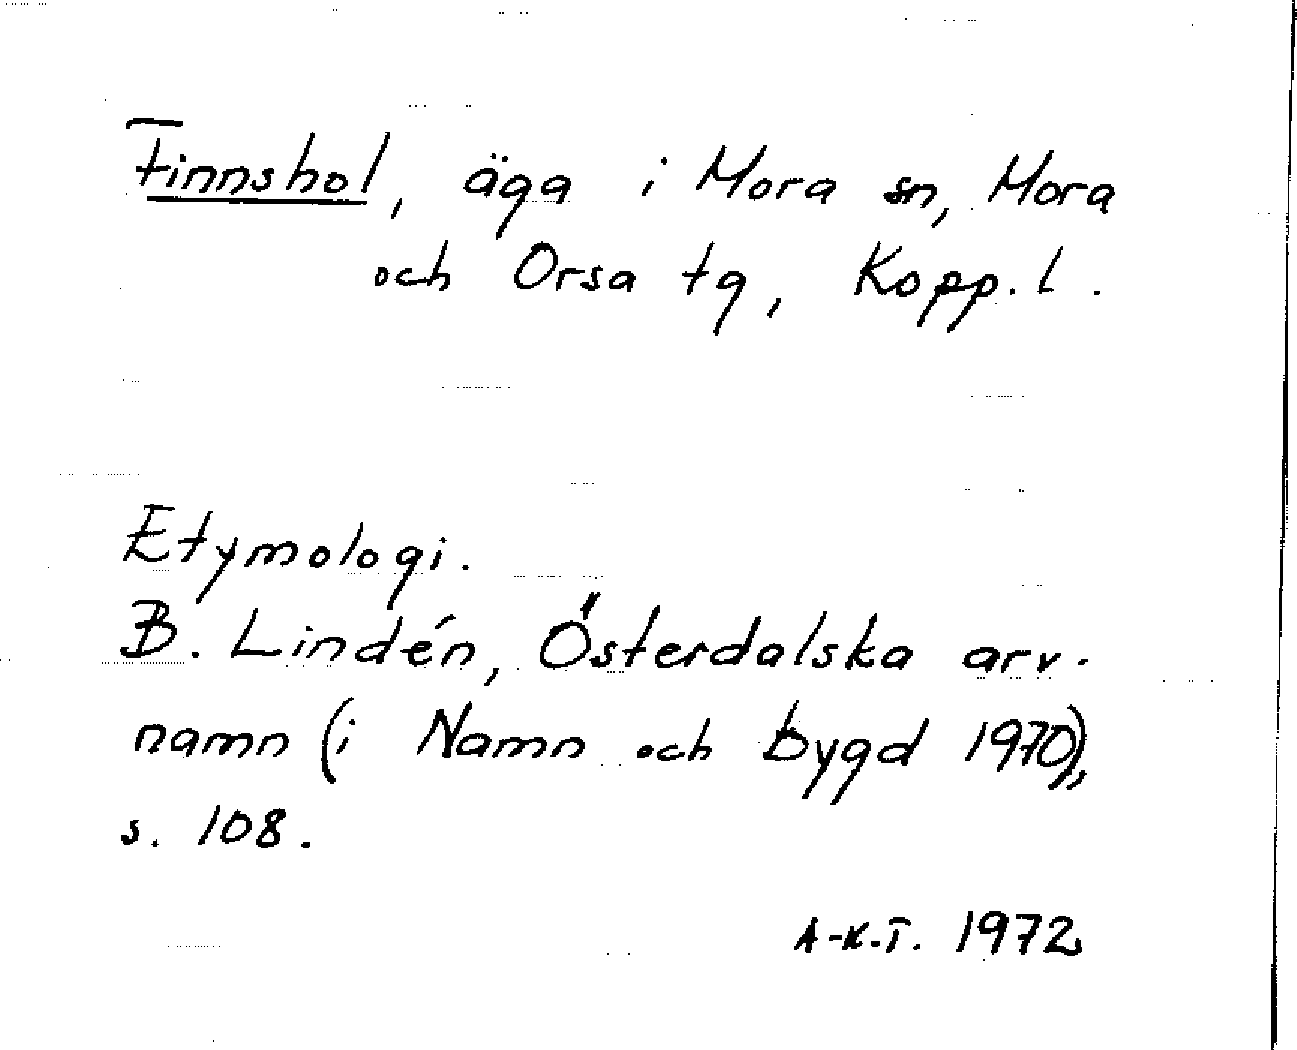 Finnshol, äga i Mora sn, Mora
och Orsa tg, Kopp. l.
Etymologi.
B. Lindén, Österdalska arv-
namn (i Namn och bygd 1970),
s. 108.
A-K.T. 1972